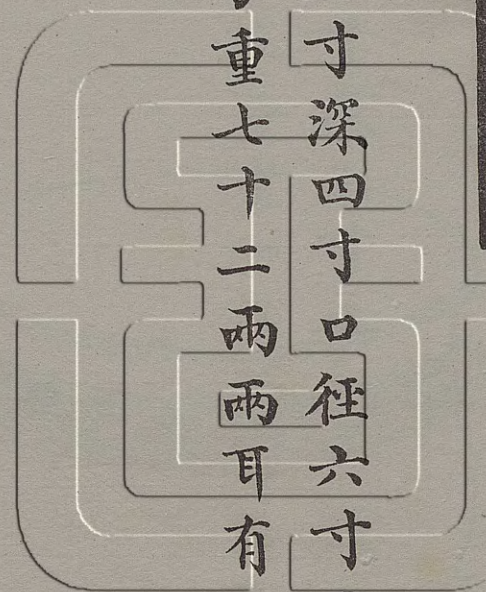 寸深四寸口徑六寸
重七十二兩兩耳有